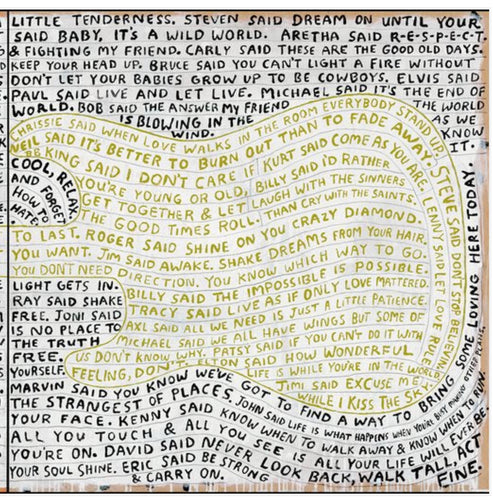 LITTLE TENDERNESS. STEVEN SAID DREAM ON UNTIL YOUR
SAID BABY, IT'S A WILD WORLD. ARETHA SAID R-E-S-P-E-C-T.
& FIGHTING MY FRIEND. CARLY SAID THESE ARE THE GOOD OLD DAYS.
KEEP YOUR HEAD UP. BRUCE SAID YOU CAN'T LIGHT A FIRE WITHOUT
DON'T LET YOUR BABIES GROW UP TO BE COWBOYS. ELVIS SAID
PAUL SAID LIVE AND LET LIVE. MICHAEL SAID IT'S THE END OF
WORLD. BOB SAID THE ANSWER MY FRIEND THE WORLD
IS BLOWING IN THE AS WE
WIND. KNOW
IT.
CHRISSIE SAID WHEN LOVE WALKS IN THE ROOM EVERYBODY STAND UP.
NEIL SAID IT'S BETTER TO BURN OUT THAN TO FADE AWAY.
KING SAID I DON'T CARE IF KURT SAID COME AS YOU ARE.
YOU'RE YOUNG OR OLD, BILLY SAID I'D RATHER
GET TOGETHER & LET LAUGH WITH THE SINNERS
THE GOOD TIMES ROLL. THAN CRY WITH THE SAINTS.
STEVE SAID DON'T STOP BELIEVING.
LENNY SAID LET LOVE RULE.
COOL, RELAX,
AND FORGET
HOW TO
HATE.
TO LAST. ROGER SAID SHINE ON YOU CRAZY DIAMOND.
YOU WANT. JIM SAID AWAKE. SHAKE DREAMS FROM YOUR HAIR.
YOU DON'T NEED DIRECTION. YOU KNOW WHICH WAY TO GO.
LIGHT GETS IN. BILLY SAID THE IMPOSSIBLE IS POSSIBLE.
RAY SAID SHAKE TRACY SAID LIVE AS IF ONLY LOVE MATTERED.
FREE. JONI SAID AXL SAID ALL WE NEED IS JUST A LITTLE PATIENCE.
IS NO PLACE TO MICHAEL SAID WE ALL HAVE WINGS BUT SOME OF
THE TRUTH US DON'T KNOW WHY. PATSY SAID IF YOU CAN'T DO IT WITH
FREE. FEELING, DON'T. ELTON SAID HOW WONDERFUL
YOURSELF. LIFE IS WHILE YOU'RE IN THE WORLD.
JIMI SAID EXCUSE ME
WHILE I KISS THE SKY.
MARVIN SAID YOU KNOW WE'VE GOT TO FIND A WAY TO BRING SOME LOVING HERE TODAY.
THE STRANGEST OF PLACES. JOHN SAID LIFE IS WHAT HAPPENS WHEN YOU'RE BUSY MAKING OTHER PLANS.
YOUR FACE. KENNY SAID KNOW WHEN TO WALK AWAY & KNOW WHEN TO RUN.
ALL YOU TOUCH & ALL YOU SEE IS ALL YOUR LIFE WILL EVER BE.
YOU'RE ON. DAVID SAID NEVER LOOK BACK, WALK TALL, ACT
YOUR SOUL SHINE. ERIC SAID BE STRONG FINE.
& CARRY ON.